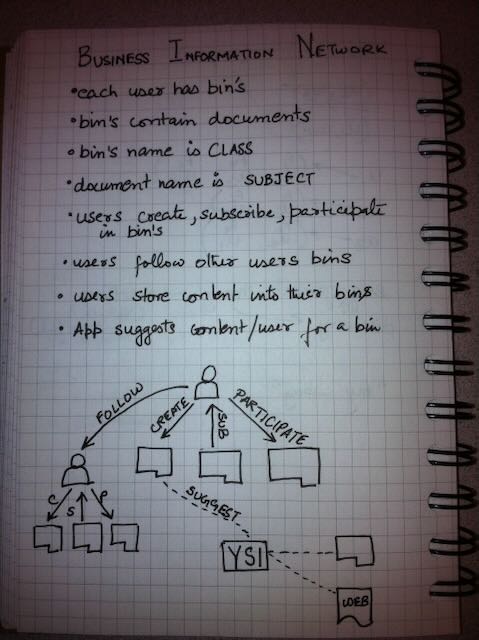 BUSINESS INFORMATION NETWORK
•each user has bin's
•bin's contain documents
•bin's name is CLASS
•document name is SUBJECT
•users create, subscribe, participate
in bin's
•users follow other users bins
•users store content into their bins
•App suggests content/user for a bin
FOLLOW
CREATE
SUB
PARTICIPATE
C
S
P
SUGGEST
YSI
WEB